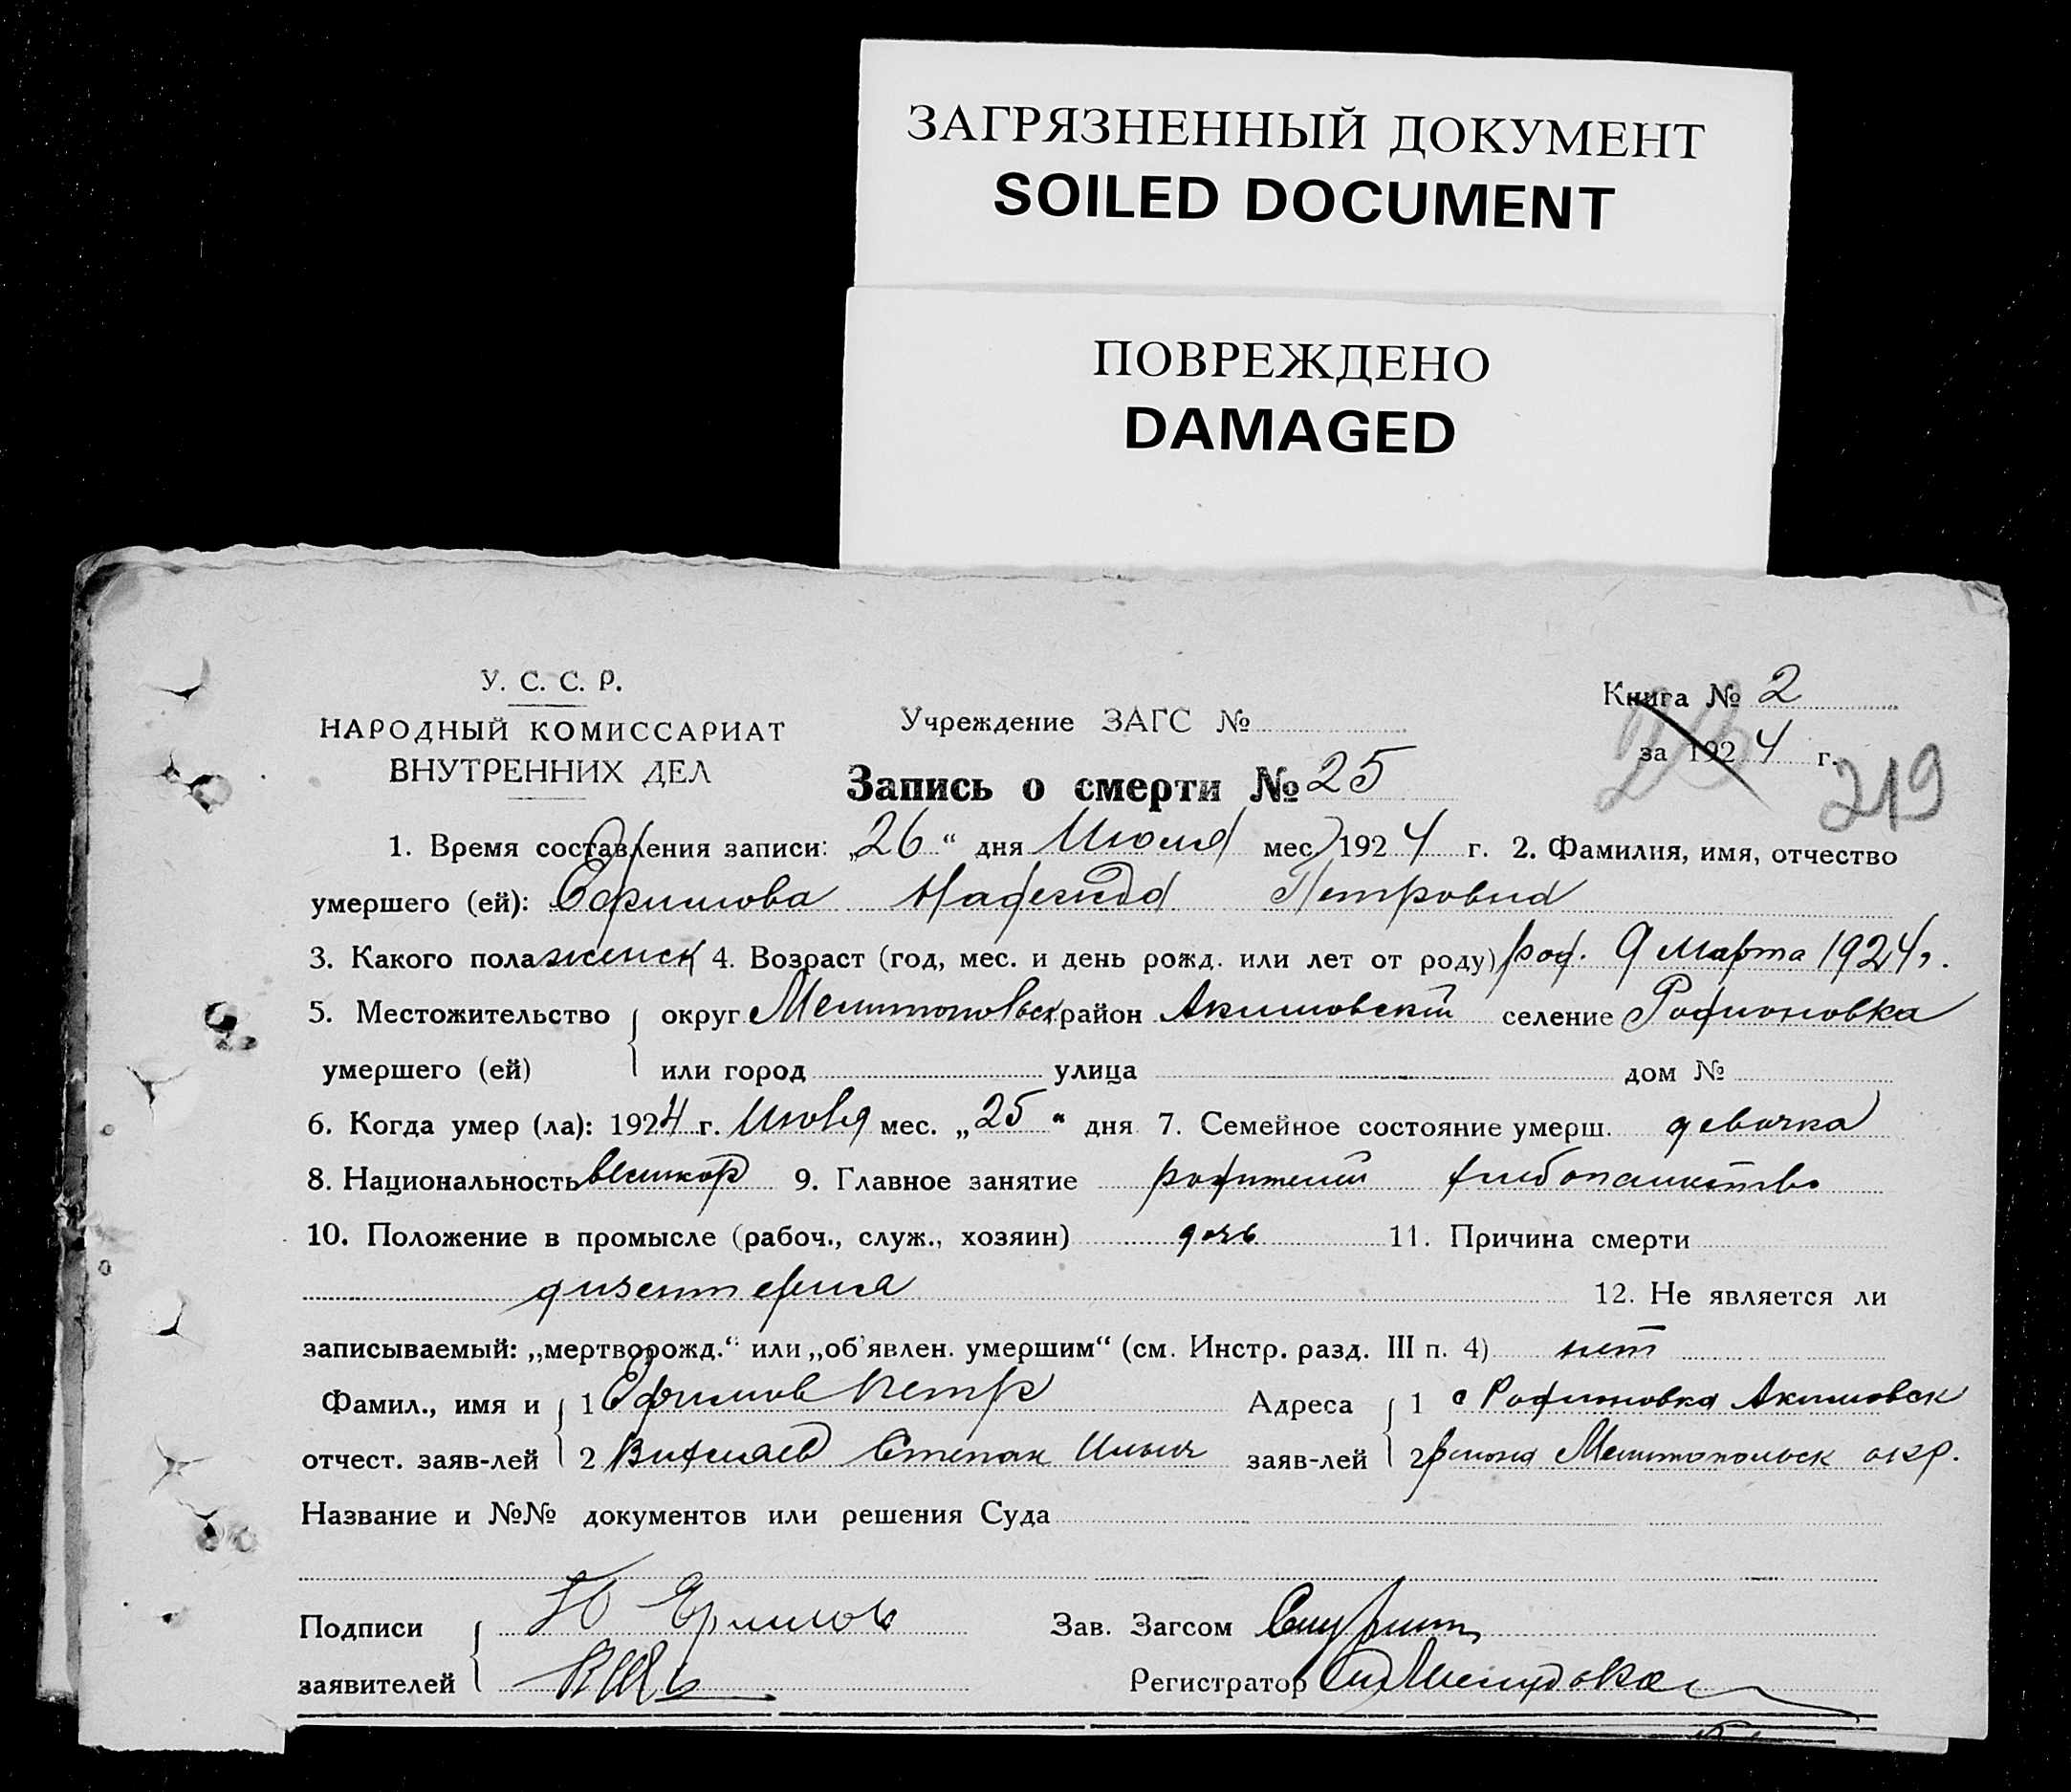 ЗАГРЯЗНЕННЫЙ ДОКУМЕНТ
SOILED DOCUMENT
ПОВРЕЖДЕНО
DAMAGED
У. С. С. Р.
НАРОДНЫЙ КОМИССАРИАТ
ВНУТРЕННИХ ДЕЛ
Учреждение ЗАГС №
Книга № 2
за 1924 г.
219
Запись о смерти № 25
1. Время составления записи: „26“ дня Июля мес. 1924 г. 2. Фамилия, имя, отчество
умершего (ей): Ефимова Надежда Петровна
3. Какого пола женск 4. Возраст (год, мес. и день рожд. или лет от роду) род. 9 Марта 1924 г.
5. Местожительство округ Мелитопольск район Акимовский селение Родионовка
умершего (ей) или город улица дом №
6. Когда умер (ла): 1924 г. Июля мес. „25“ дня 7. Семейное состояние умерш. девочка
8. Национальность великор 9. Главное занятие родителей хлебопашество
10. Положение в промысле (рабоч., служ., хозяин) дочь 11. Причина смерти
дизентерия 12. Не является ли
записываемый: „мертворожд.“ или „об'явлен. умершим“ (см. Инстр. разд. III п. 4) нет
Фамил., имя и 1 Ефимов Петр Адреса 1 с Родионовка Акимовск
отчест. заяв-лей 2 Степан Ильич заяв-лей 2 района Мелитопольск окр.
Название и №№ документов или решения Суда
Подписи Ефимов Зав. Загсом
заявителей Регистратор